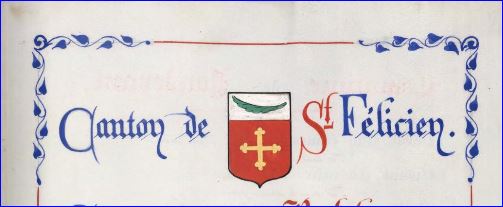 Canton de St Félicien.